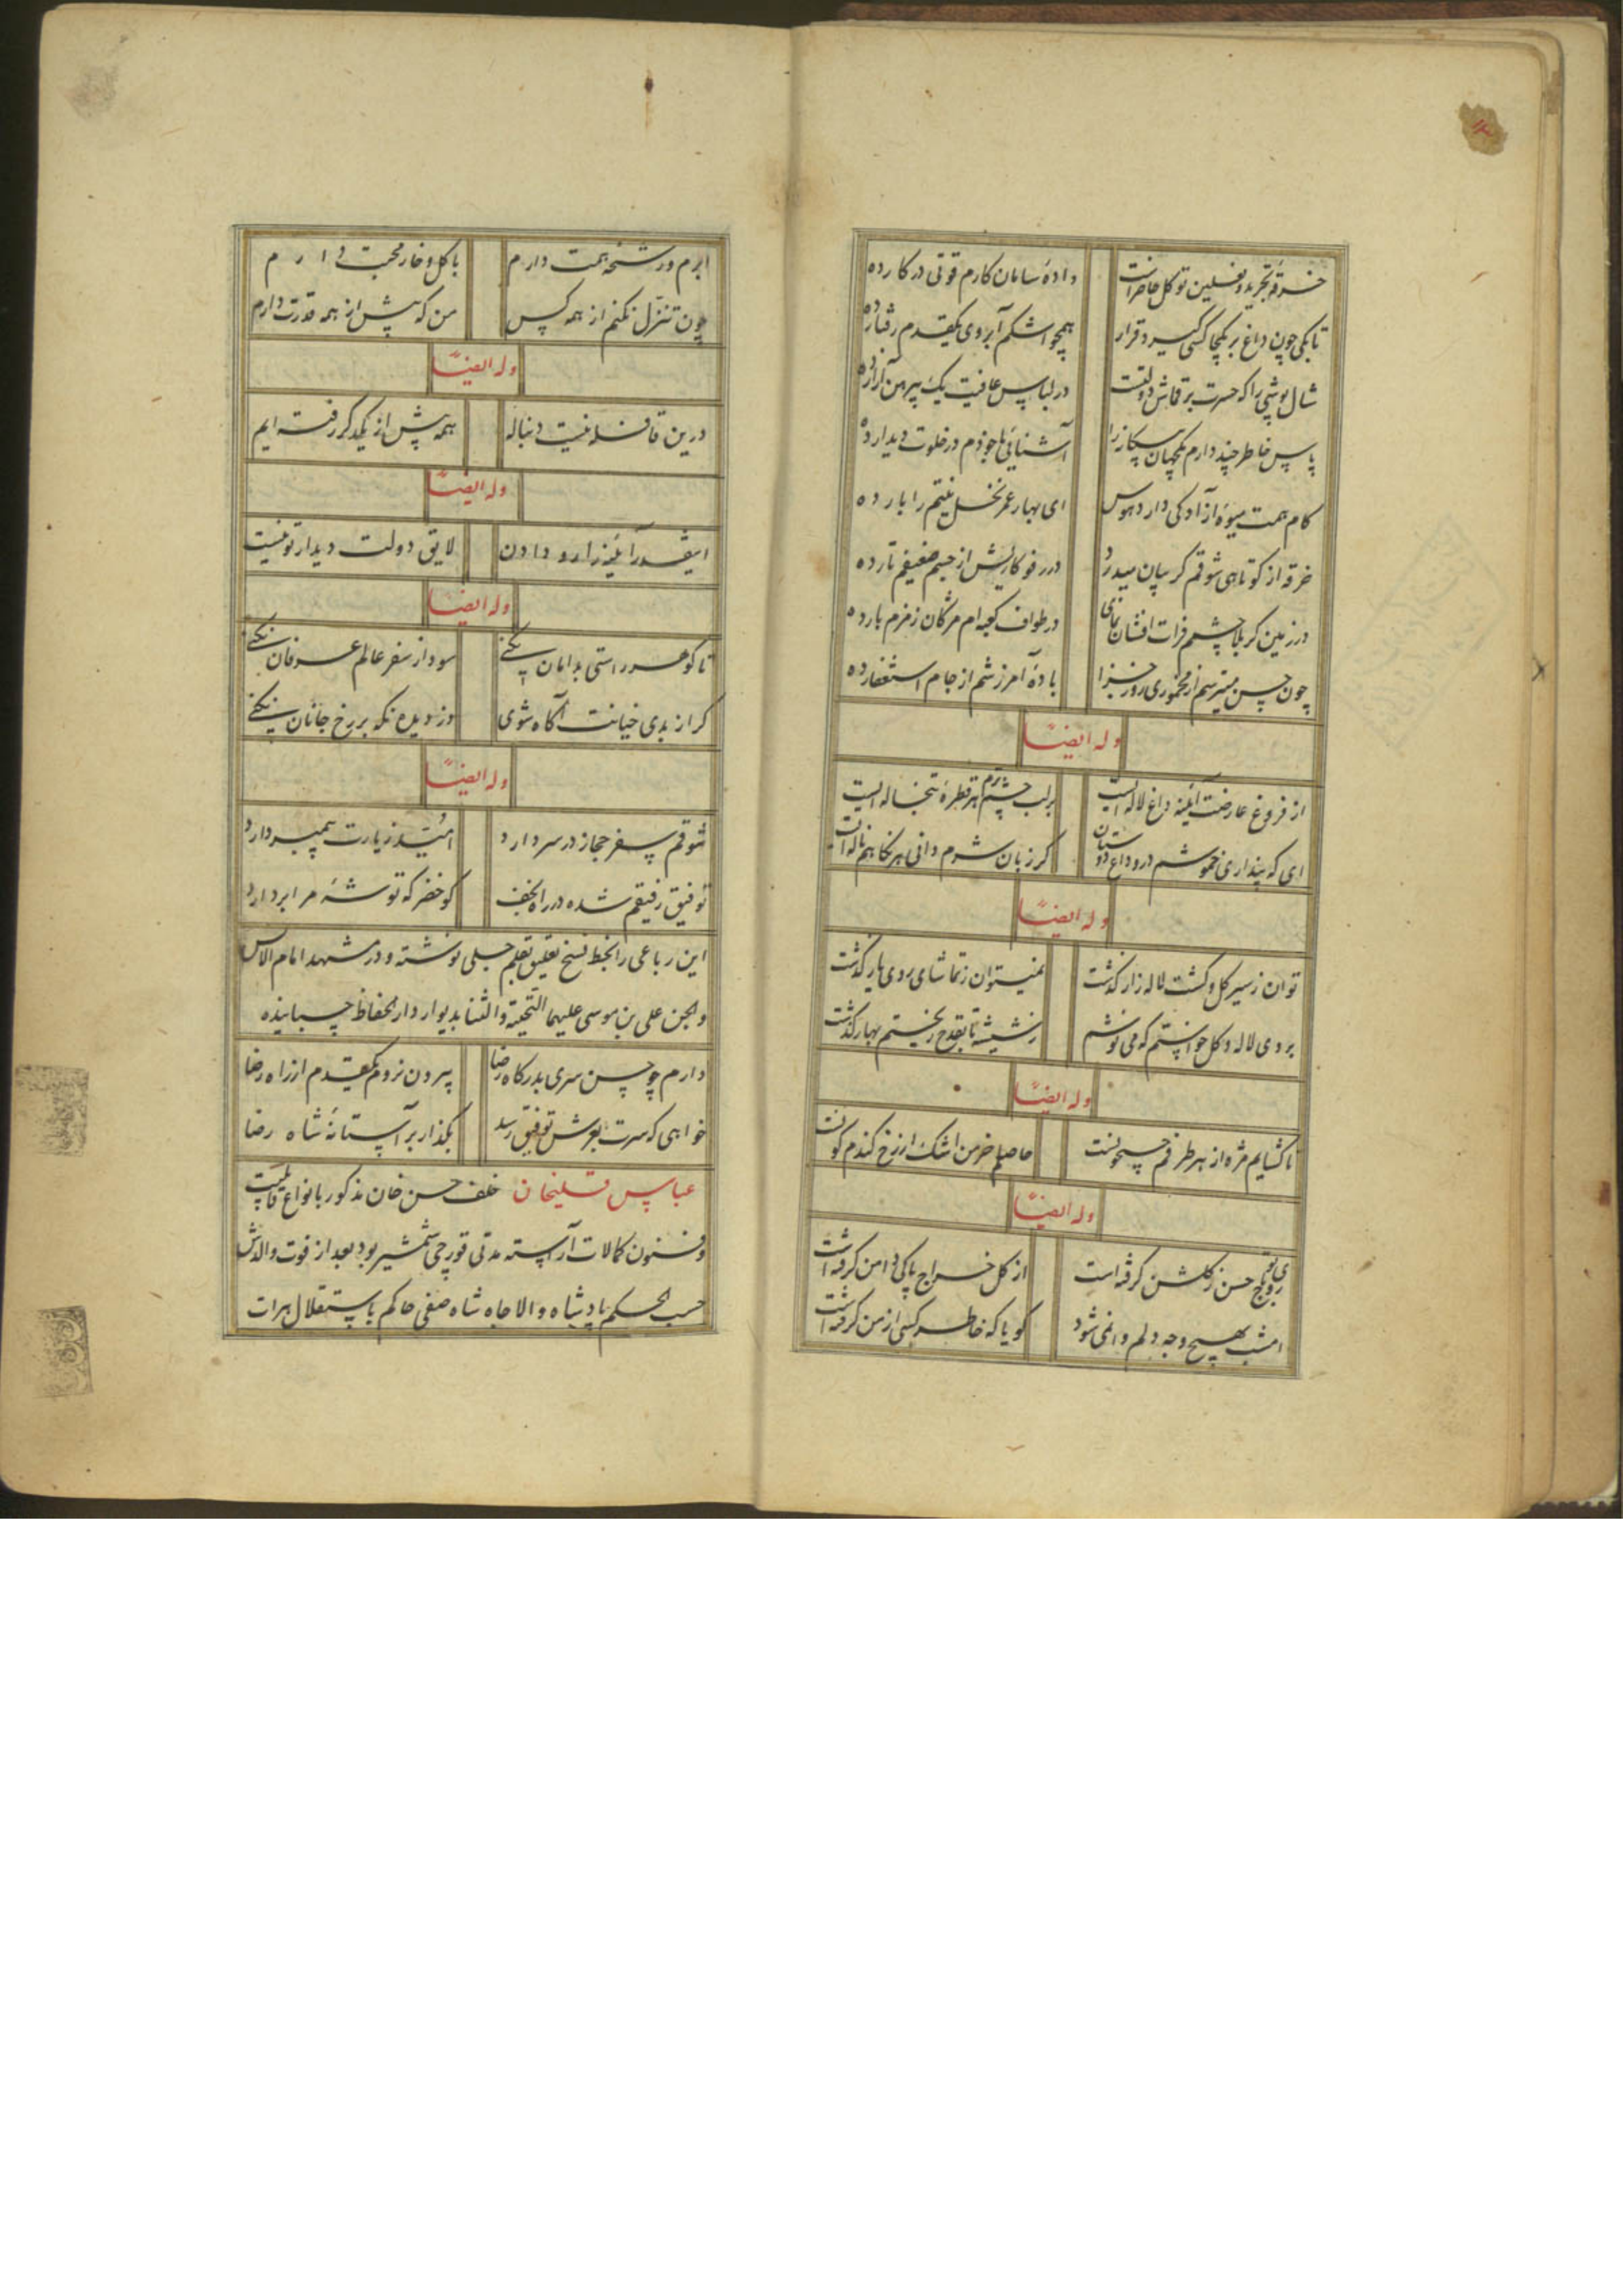 خرقهٔ تجرید و نعلین توکل حاضر است
دادهٔ سامان کارم قوتی در کار ده
تا بکی چون داغ بر یکجا کسی گیرد قرار
همچو اشکم آبروی یکقدم رفتار ده
شال پوشی را که حسرت بر قماش دولتست
در لباس عافیت یک پیرهن آزار ده
پاس خاطر چند دارم یکجهان بیگانه را
آشنائی با خودم در خلوت دیدار ده
کام همت میوهٔ آزادگی دارد هوس
ای بهار عمر نخل نیتم را بار ده
خرقه از کوتاهی شوقم گریبان میدرد
در رفو کاریش از جسم ضعیفم تار ده
در زمین کربلا چشم فرات افشان نمای
در طواف کعبه ام مژگان زمزم بار ده
چون حسن میترسم از مخموری روز جزا
بادهٔ آمرزشم از جام استغفار ده
وله ایضاً
از فروغ عارضت آیینه داغ لاله ایست
بر لب چشم ترم هر قطرهٔ تبخاله ایست
ای که پنداری خموشم در وداع دوستان
گر زبان شرم دانی هر نگاهم ناله ایست
وله ایضاً
توان ز سیر گل و گشت لاله زار گذشت
نمیتوان ز تماشای روی یار گذشت
بروی لاله و گل خواستم که می نوشم
ز شیشه تا بقدح ریختم بهار گذشت
وله ایضاً
تا گشایم مژه از هر طرفم
حاصلم خرمن اشک از رخ گندم گونست
وله ایضاً
روی تو باج حسن ز گلشن گرفته است
از گل خراج پاکی دامن گرفته است
امشب بهیچ وجه دلم وا نمی شود
گویا که خاطر کسی از من گرفته است
ابرم و رشحهٔ همت دارم
با گل و خار محبت دارم
چون تنزل نکنم از همه کس
من که پیش از همه قدرت دارم
وله ایضاً
درین قافله نیست دنباله
همه پیش از یکدگر رفته ایم
وله ایضاً
اینقدر آینه را رو دادن
لایق دولت دیدار تو نیست
وله ایضاً
تا گوهر راستی بدامان نکنی
سودا ز سفر عالم عرفان نکنی
گر از بدی خیانت آگاه شوی
دزدیده نگه بر رخ جانان نکنی
وله ایضاً
شوقم سفر حجاز در سر دارد
امید زیارت پیمبر دارد
توفیق رفیقم شده در راه نجف
کو خضر که توشهٔ مرا بردارد
این رباعی را بخط نسخ تعلیق بقلم جلی نوشته و در مشهد امام الانس
والجن علی بن موسی علیهما التحیة والثنا بدیوار دار الحفاظ چسبانیده
دارم چو حسن سری بدرگاه رضا
بیرون نروم یکقدم از راه رضا
خواهی که سرت بعرش توفیق رسد
بگذار بر آستانهٔ شاه رضا
عباس قلیخان خلف حسن خان مذکور بانواع قابلیت
و فنون کمالات آراسته مدتی قورچی شمشیر بود بعد از فوت والدش
حسب الحکم پادشاه والا جاه شاه صفی حاکم باستقلال هرات